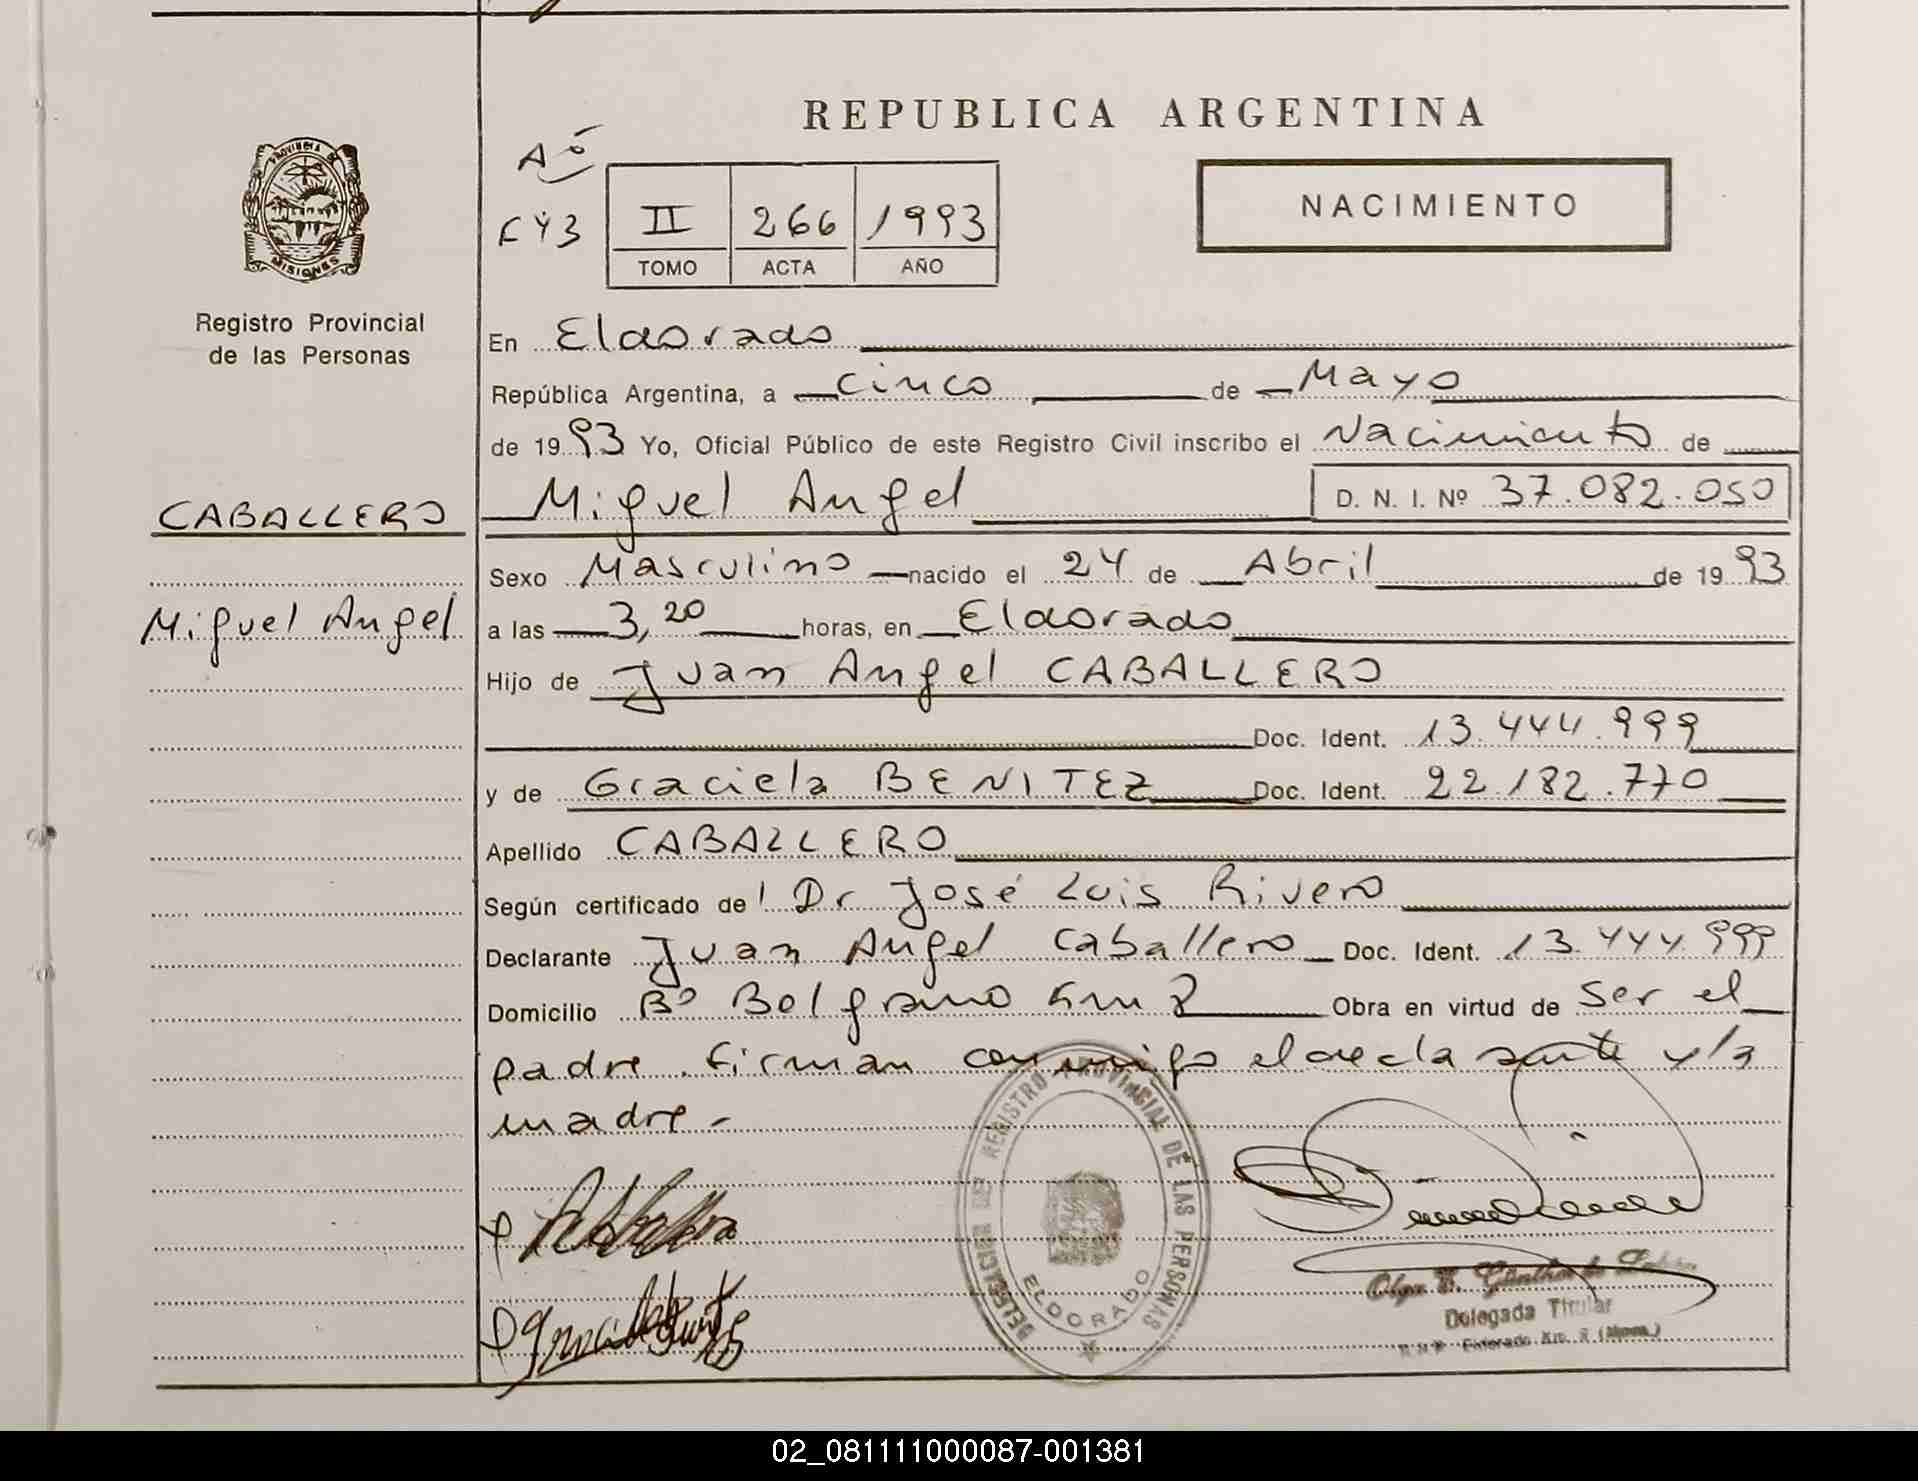 REPUBLICA ARGENTINA
NACIMIENTO
PROVINCIA DE
MISIONES
Registro Provincial
de las Personas
CABALLERO
Miguel Angel
II 266 1993
TOMO ACTA AÑO
En Eldorado
República Argentina, a cinco de Mayo
de 1993 Yo, Oficial Público de este Registro Civil inscribo el Nacimiento de
Miguel Angel D. N. I. Nº 37.082.050
Sexo Masculino nacido el 24 de Abril de 1993
a las 3,20 horas, en Eldorado
Hijo de Juan Angel CABALLERO
Doc. Ident. 13.444.999
y de Graciela BENITEZ Doc. Ident. 22.182.770
Apellido CABALLERO
Según certificado de Dr José Luis Rivero
Declarante Juan Angel Caballero Doc. Ident. 13.444.999
Domicilio Bº Belgrano km 8 Obra en virtud de ser el
padre. firman conmigo el declarante y la
madre -
DELEGACION DEL REGISTRO PROVINCIAL DE LAS PERSONAS
ELDORADO
Olga E. Günther de
Delegada Titular
Eldorado Km. 8 (Mnes.)
02_081111000087-001381